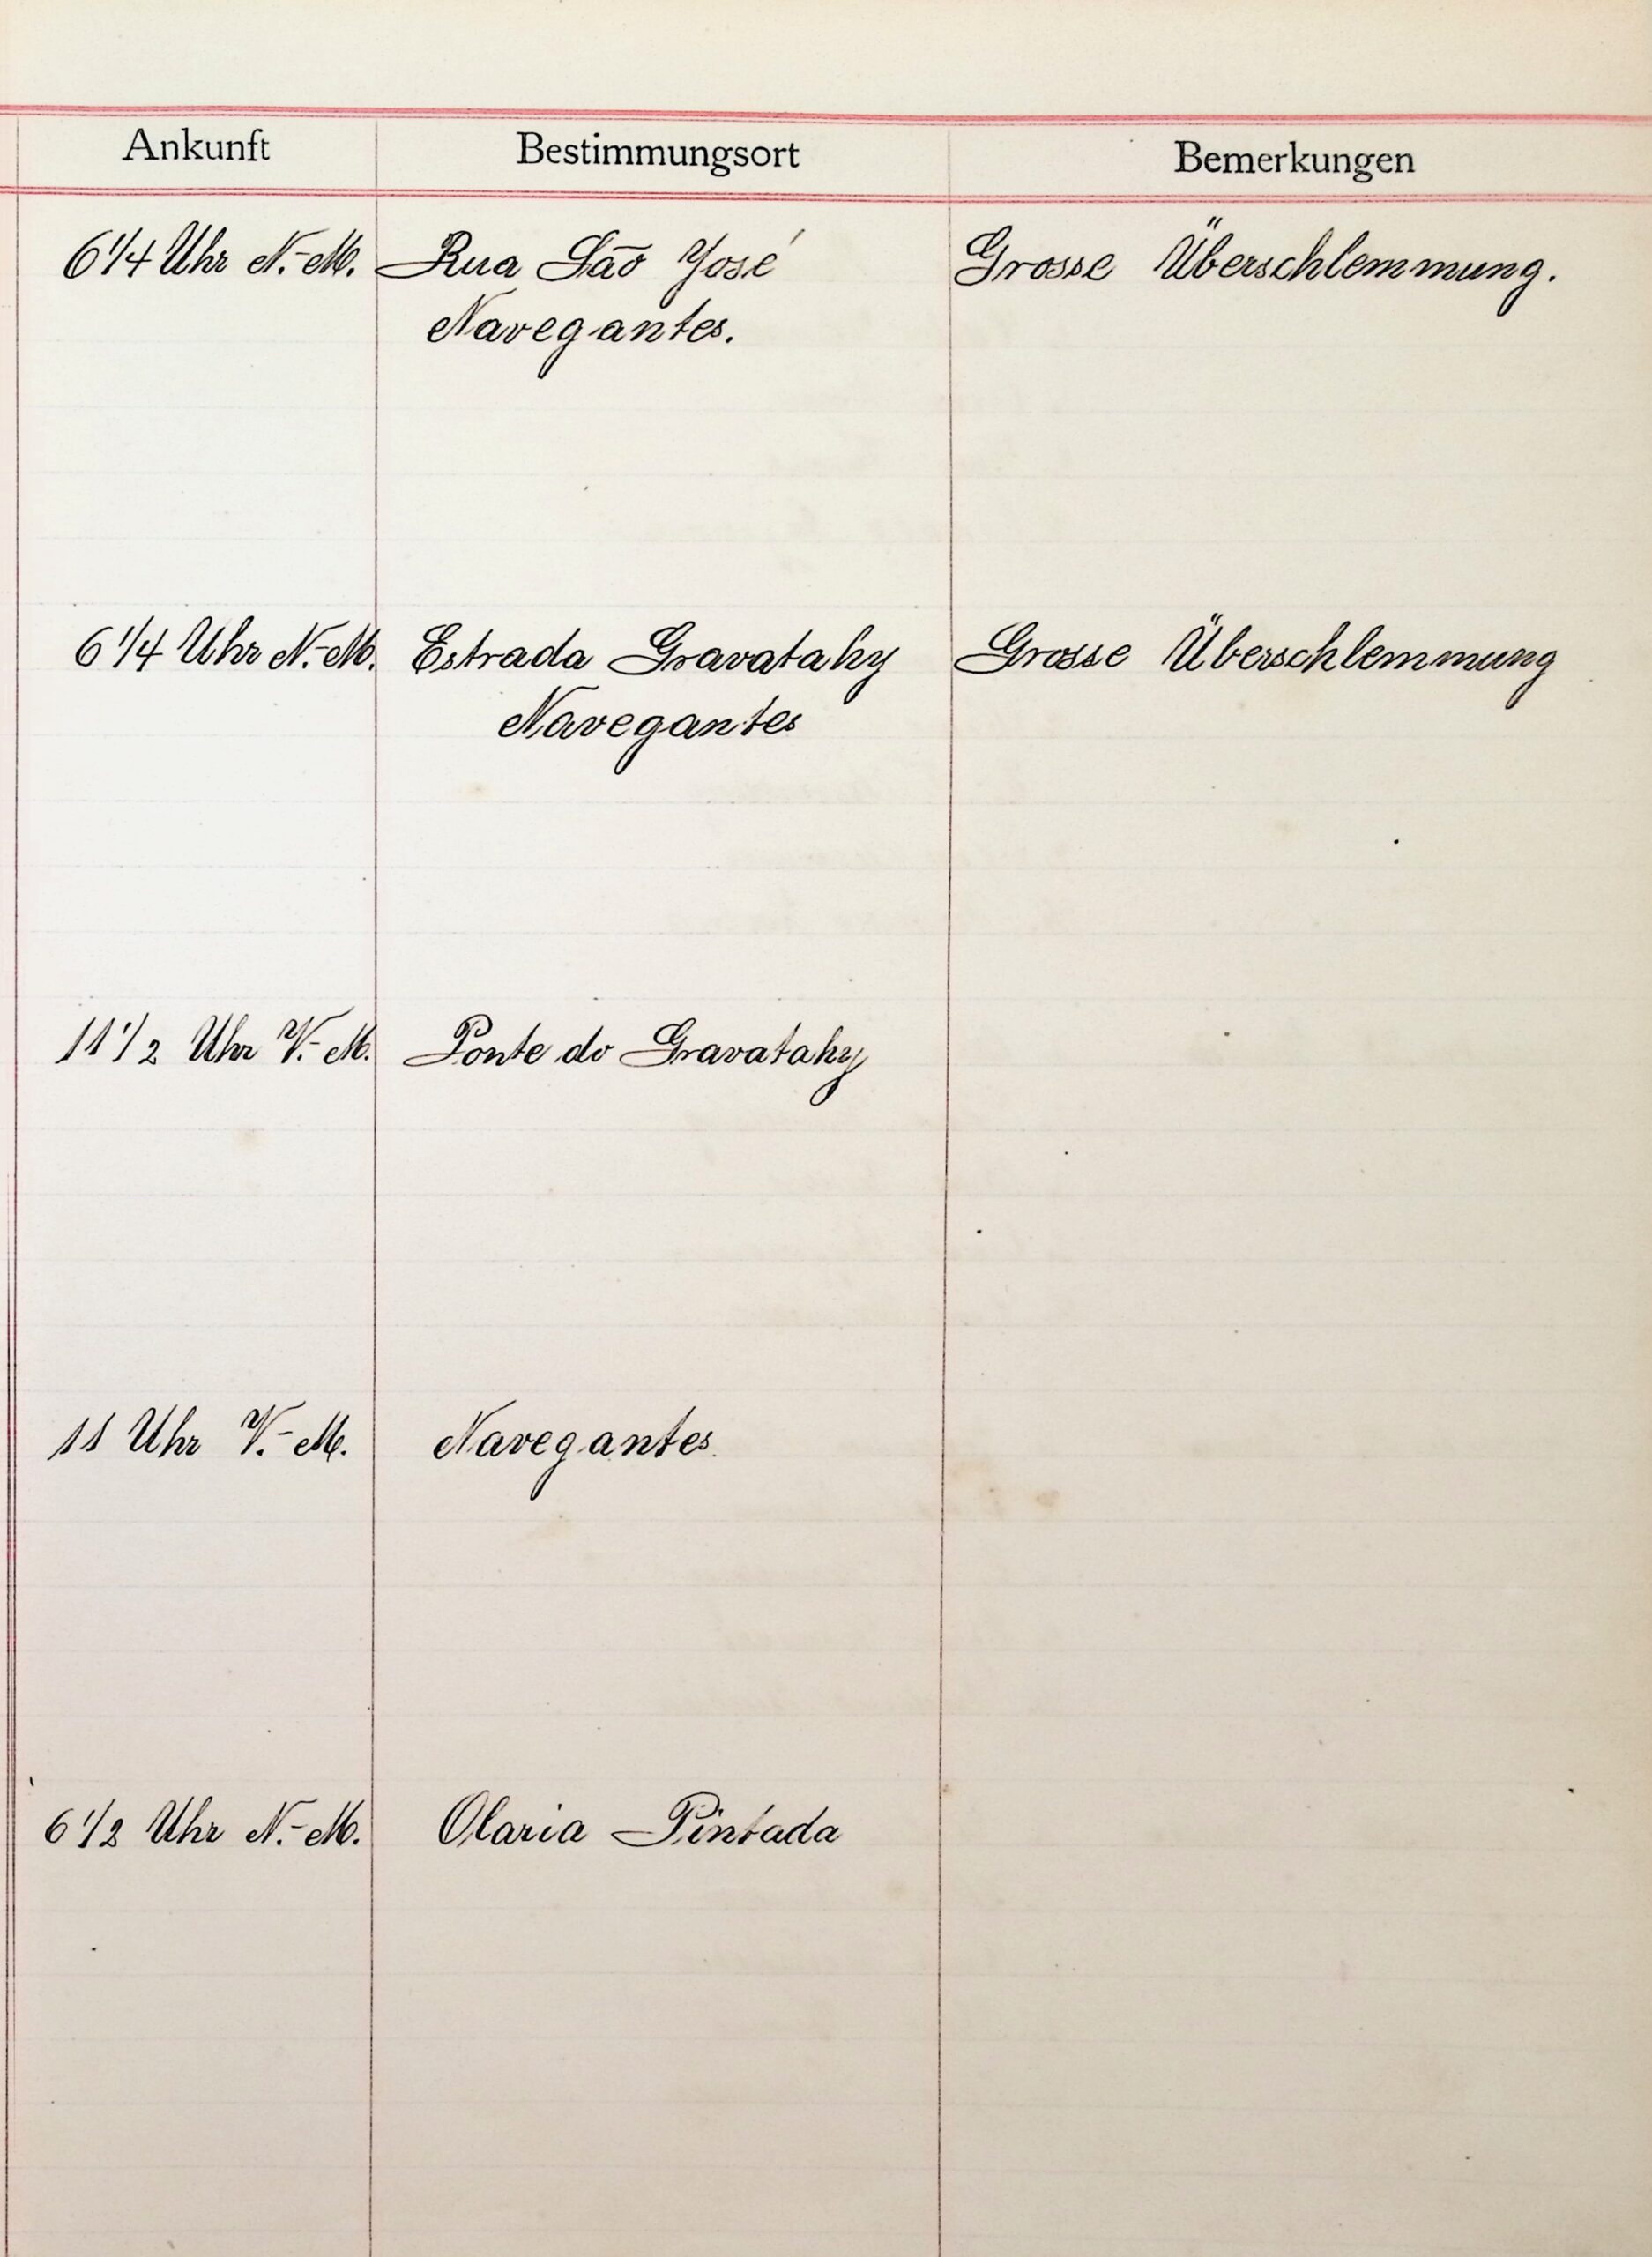 Ankunft Bestimmungsort Bemerkungen
6 1/4 Uhr N.-M. Rua São José Grosse Überschlemmung.
Navegantes.
6 1/4 Uhr N.-M. Estrada Gravatahy Grosse Überschlemmung
Navegantes
11 1/2 Uhr V.-M. Ponte do Gravatahy
11 Uhr V.-M. Navegantes.
6 1/2 Uhr N.-M. Olaria Pintada